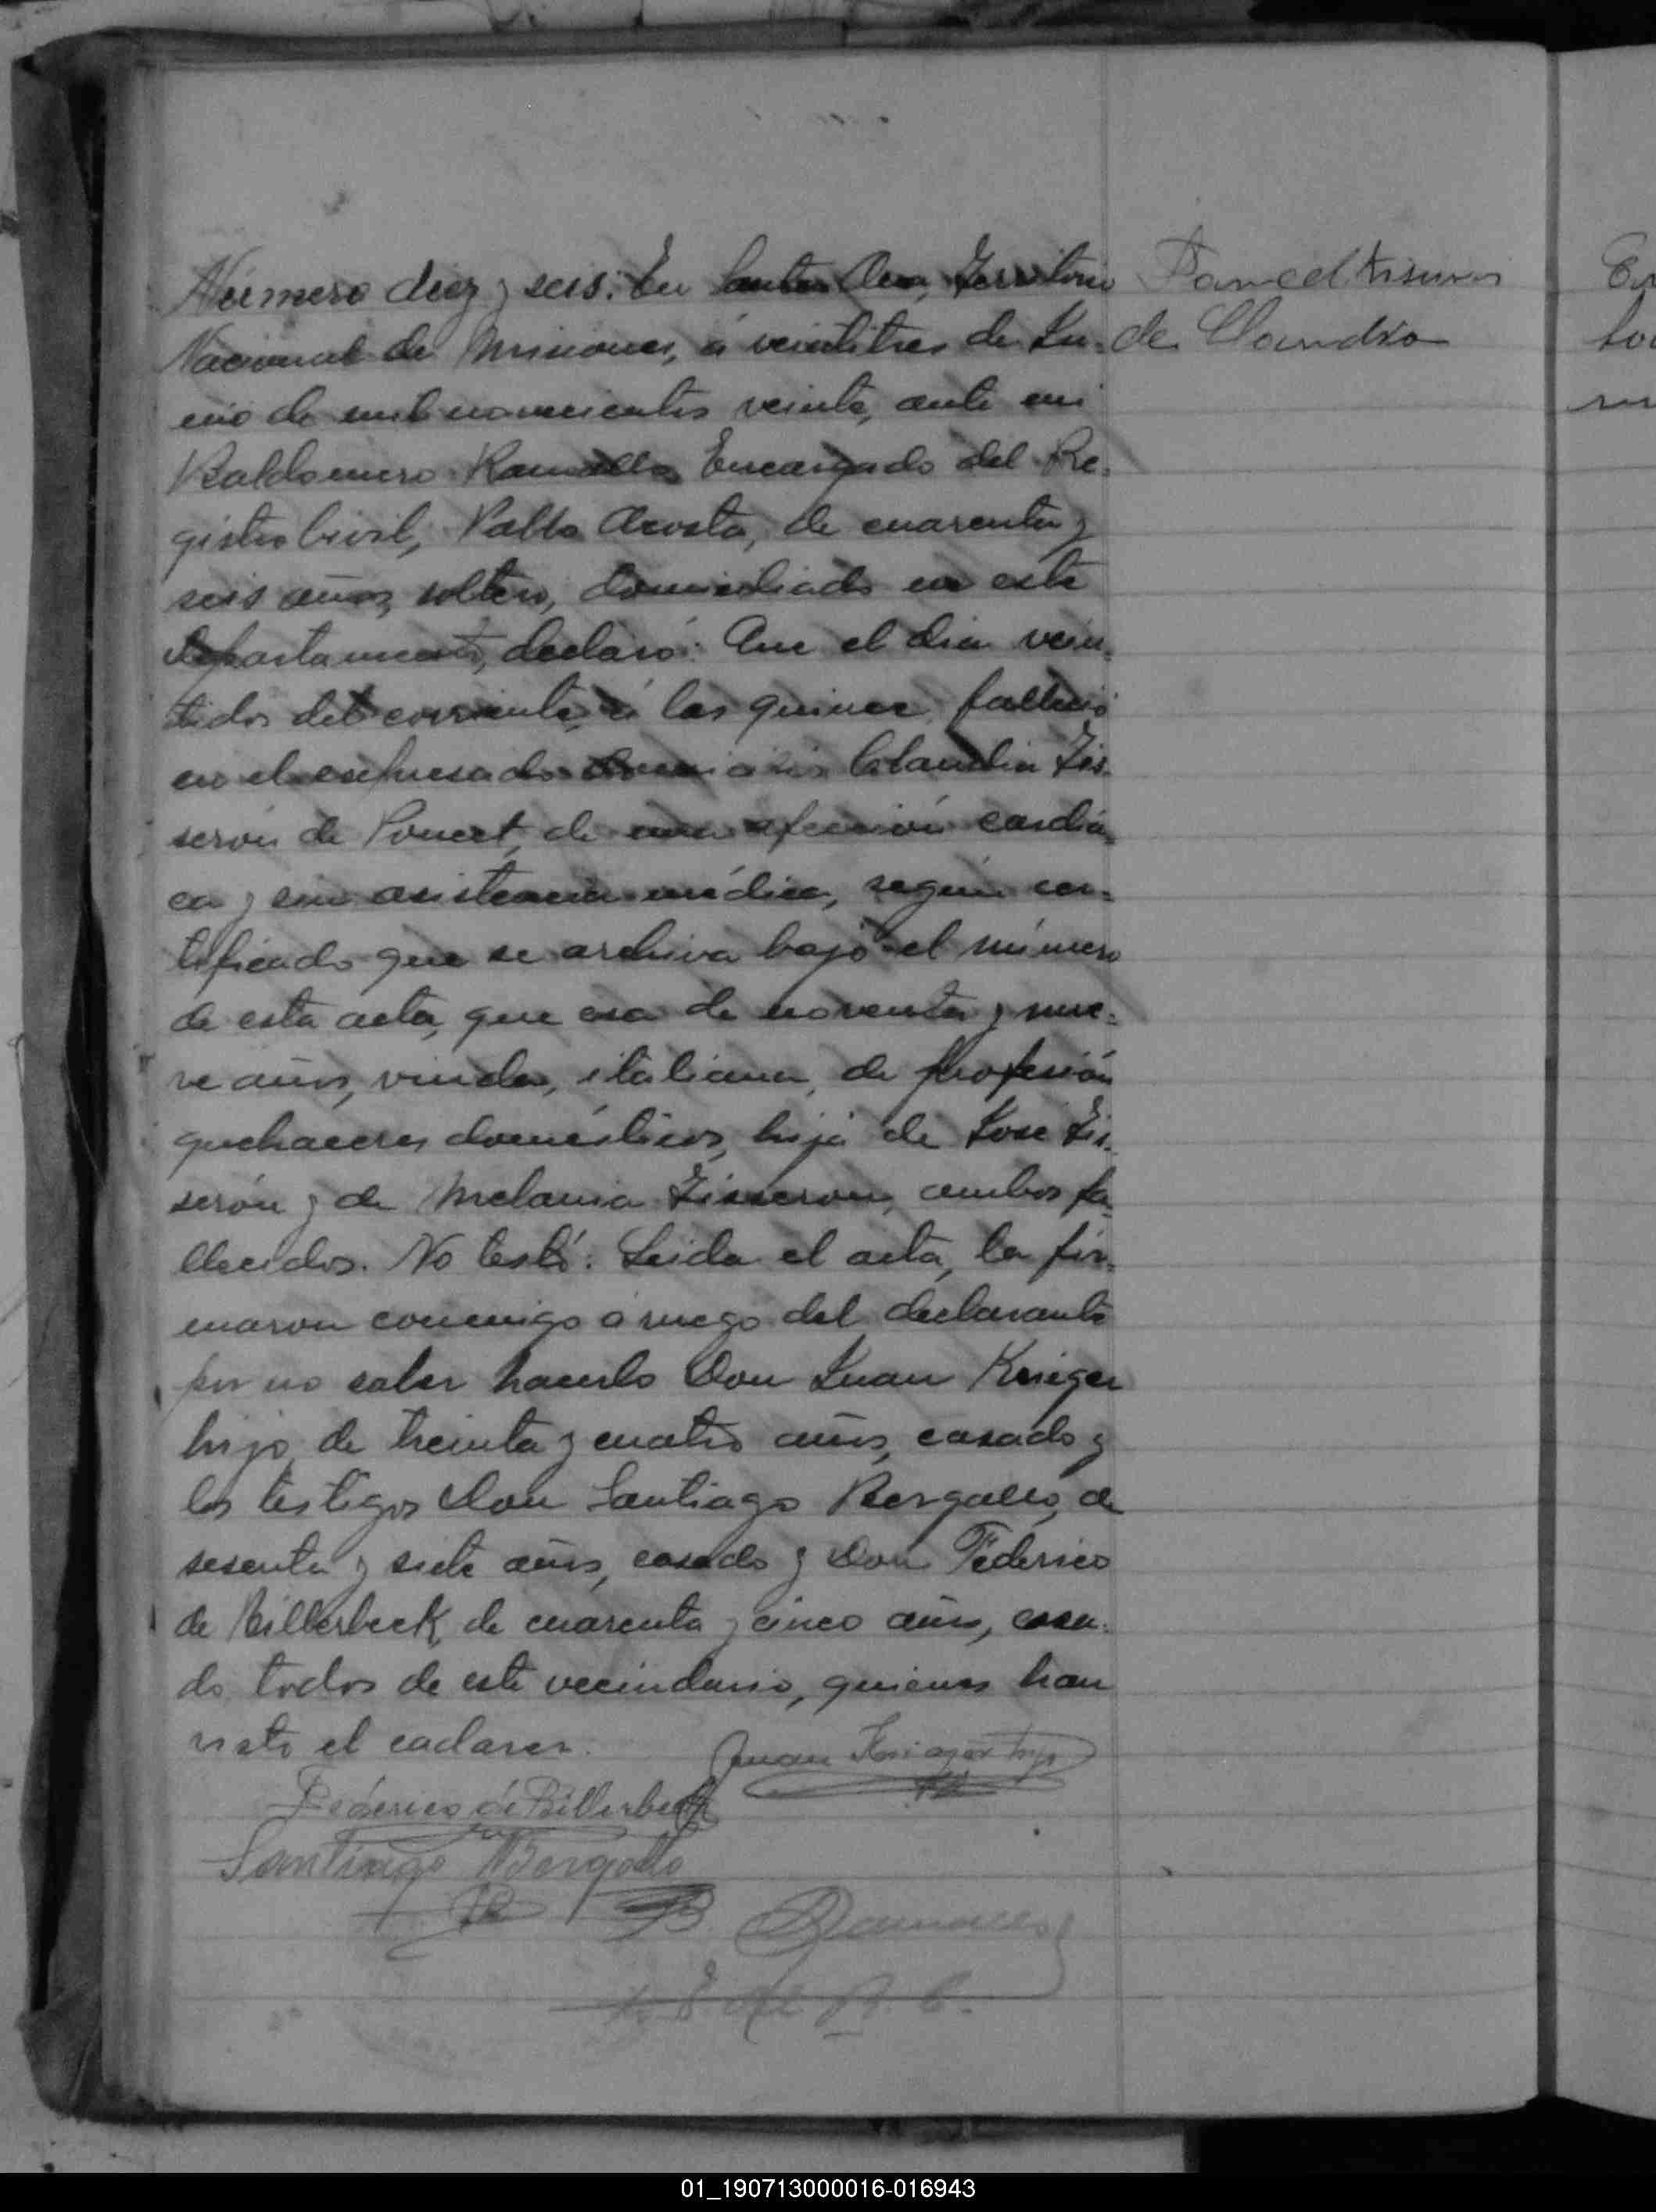 Número diez y seis: En Santa Ana, Territorio
Nacional de Misiones, á veintitres de Ju-
nio de mil novecientos veinte, ante mi
Baldomero Ramallo Encargado del Re-
gistro Civil, Pablo Acosta, de cuarenta y
seis años, soltero, domiciliado en este
departamento, declaró: Que el dia vein-
tidos del corriente, á las quince, falleció
en el expresado domicilio Claudia Tis-
serón de Poncet, de una afección cardia-
ca y sin asistencia médica, según cer-
tificado que se archiva bajo el número
de esta acta, que era de noventa y nue-
ve años, viuda, italiana, de profesión
quehaceres domésticos, hija de José Tis-
serón y de Melania Tisseron, ambos fa-
llecidos. No testó. Leida el acta, la fir-
maron conmigo á ruego del declarante
por no saber hacerlo Don Juan Krieger
hijo, de treinta y cuatro años, casado y
los testigos Don Santiago Bergallo, de
sesenta y siete años, casado y Don Féderico
de Billerbeck, de cuarenta y cinco años, casa-
do, todos de este vecindario, quienes han
visto el cadaver.
Juan Krieger hijo
Féderico de Billerbeck
Santiago Bergallo
BRamallo
E. del R. C.
de Claudia
01_190713000016-016943